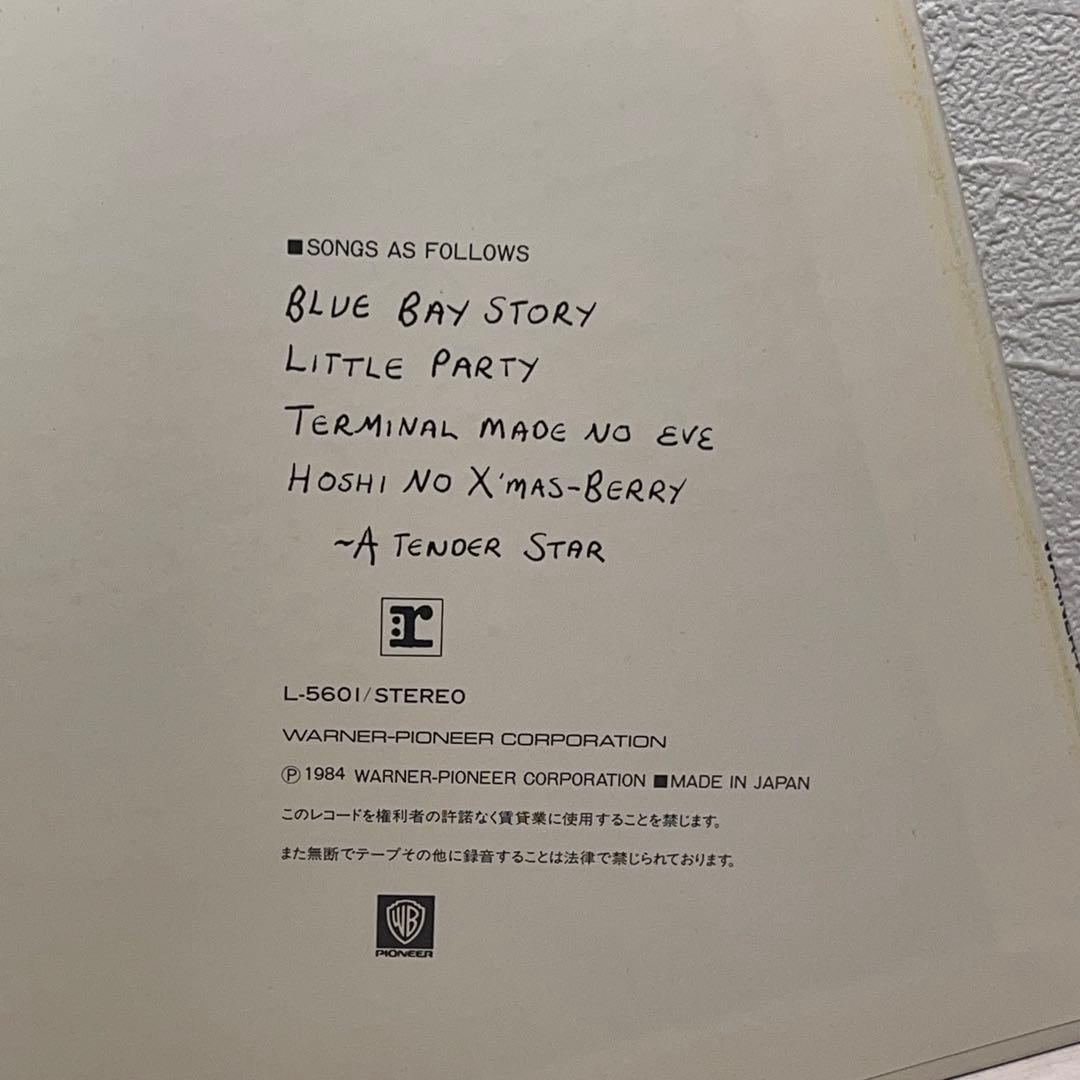 ■SONGS AS FOLLOWS
BLUE BAY STORY
LITTLE PARTY
TERMINAL MADE NO EVE
HOSHI NO X'MAS-BERRY
~A TENDER STAR
r
L-5601/STEREO
WARNER-PIONEER CORPORATION
Ⓟ1984 WARNER-PIONEER CORPORATION ■MADE IN JAPAN
このレコードを権利者の許諾なく賃貸業に使用することを禁じます。
また無断でテープその他に録音することは法律で禁じられております。
WB
PIONEER